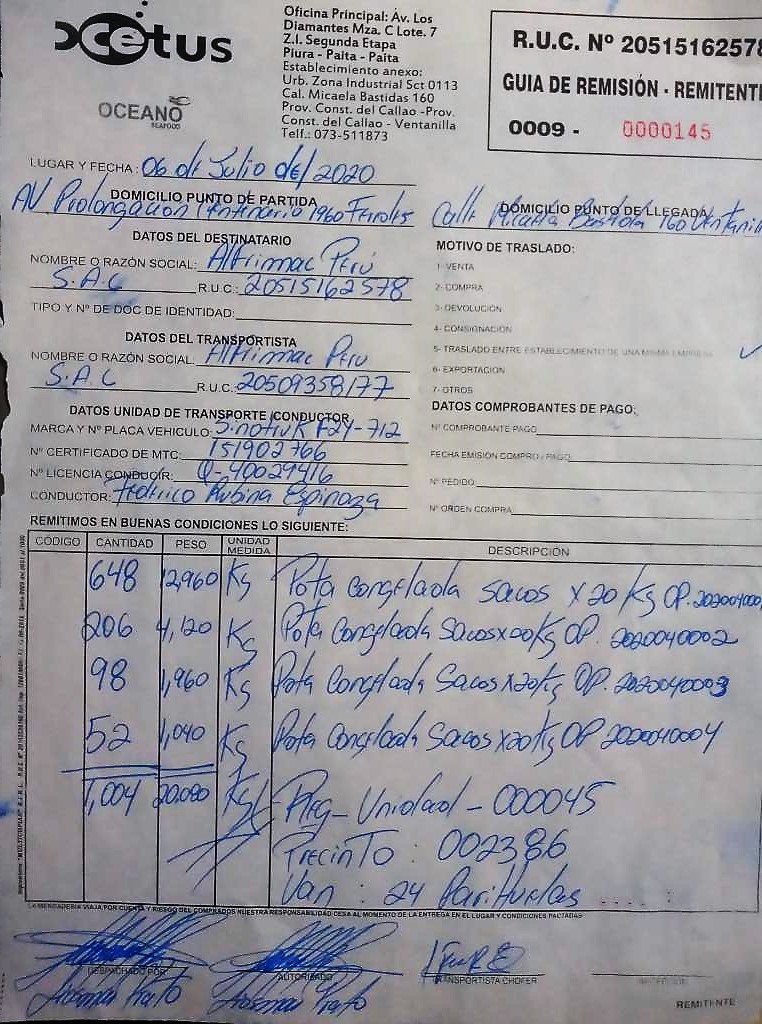 cetus
OCEANO
SEAFOOD
Oficina Principal: Av. Los
Diamantes Mza. C Lote. 7
Z.I. Segunda Etapa
Piura - Paita - Paita
Establecimiento anexo:
Urb. Zona Industrial Sct 0113
Cal. Micaela Bastidas 160
Prov. Const. del Callao -Prov.
Const. del Callao - Ventanilla
Telf.: 073-511873
R.U.C. Nº 20515162578
GUIA DE REMISIÓN - REMITENTE
0009 - 0000145
LUGAR Y FECHA: 06 de Julio del 2020
DOMICILIO PUNTO DE PARTIDA
AV Prolongacion Centenario 1960 Ferroles
DOMICILIO PUNTO DE LLEGADA
Calle Micaela Bastida 160 Ventanill
DATOS DEL DESTINATARIO
NOMBRE O RAZÓN SOCIAL: Altrimac Perú
S.A.C R.U.C.: 20515162578
TIPO Y Nº DE DOC DE IDENTIDAD:
DATOS DEL TRANSPORTISTA
NOMBRE O RAZÓN SOCIAL: Altrimac Peru
S.A.C R.U.C: 20509358177
DATOS UNIDAD DE TRANSPORTE / CONDUCTOR
MARCA Y Nº PLACA VEHICULO: Sinotruk F2Y-712
Nº CERTIFICADO DE MTC: 151902766
Nº LICENCIA CONDUCIR: Q-40029416
CONDUCTOR: Federico Rubina Espinoza
MOTIVO DE TRASLADO:
1- VENTA
2- COMPRA
3- DEVOLUCIÓN
4- CONSIGNACIÓN
5- TRASLADO ENTRE ESTABLECIMIENTO DE UNA MISMA EMPRESA ✓
6- EXPORTACIÓN
7- OTROS
DATOS COMPROBANTES DE PAGO:
Nº COMPROBANTE PAGO
FECHA EMISION COMPRO / PAGO
Nº PEDIDO
Nº ORDEN COMPRA
REMITIMOS EN BUENAS CONDICIONES LO SIGUIENTE:
CÓDIGO CANTIDAD PESO UNIDAD MEDIDA DESCRIPCIÓN
648 12,960 Kg Pota Congelada Sacos x 20 Kg OP. 202004000
206 4,120 Kg Pota Congelada Sacos x 20 Kg OP. 2020040002
98 1,960 Kg Pota Congelada Sacos x 20 Kg OP. 2020040003
52 1,040 Kg Pota Congelada Sacos x 20 Kg OP 2020040004
1,004 20,080 Kg Unidad - 000045
Precinto : 002386
Van : 24 Parihuelas
LA MERCADERIA VIAJA POR CUENTA Y RIESGO DEL COMPRADOR NUESTRA RESPONSABILIDAD CESA AL MOMENTO DE LA ENTREGA EN EL LUGAR Y CONDICIONES PACTADAS
DESPACHADO POR
AUTORIZADO
TRANSPORTISTA CHOFER
RECEPCIÓN
REMITENTE